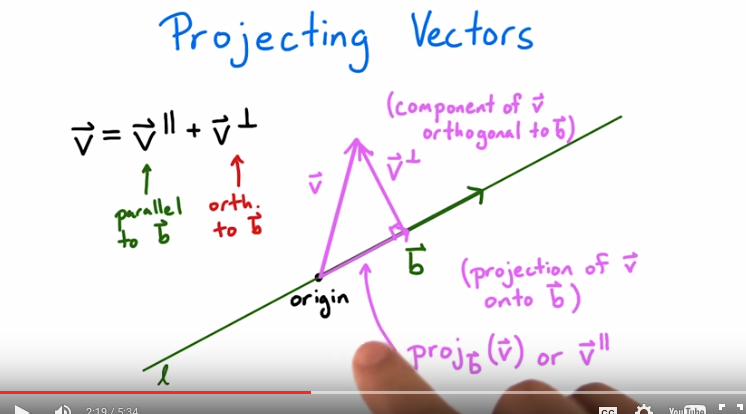 Projecting Vectors
v⃗ = v⃗^∥ + v⃗^⊥
parallel
to b⃗
orth.
to b⃗
(component of v⃗
orthogonal to b⃗)
v⃗
v⃗^⊥
b⃗
origin
(projection of v⃗
onto b⃗)
proj_b⃗(v⃗) or v⃗^∥
l
2:19 / 5:34
CC
YouTube